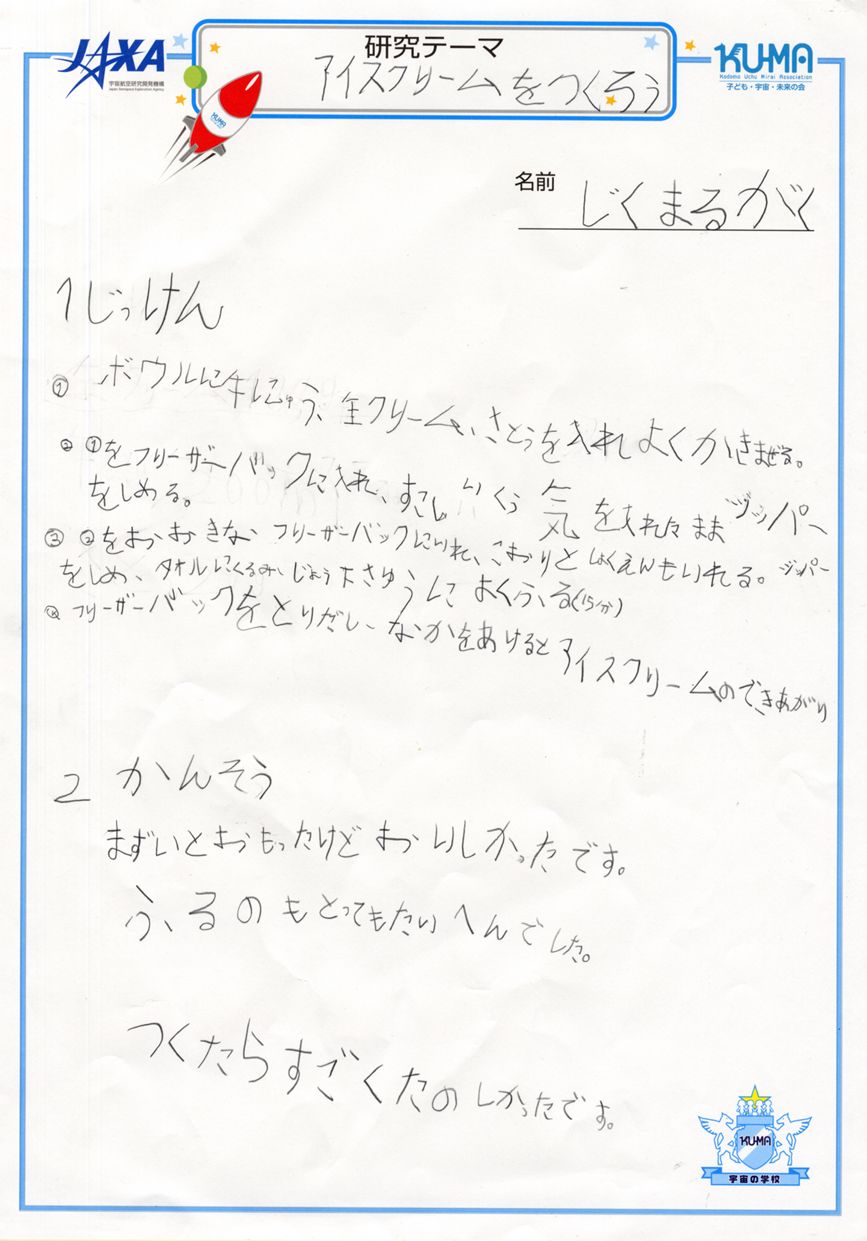 JAXA
宇宙航空研究開発機構
Japan Aerospace Exploration Agency
研究テーマ
アイスクリームをつくろう
KU-MA
Kodomo Uchu Mirai Association
子ども・宇宙・未来の会
KU-MA
名前 じくまるがく
1じっけん
① ボウルに牛にゅう、生クリーム、さとうを入れよくかきまぜる。
② ①をフリーザーバックに入れ、すこしくう気を入れたままジッパー
をしめる。
③ ②をおおきなフリーザーバックにいれ、こおりとしょくえんもいれる。ジッパー
をしめ、タオルにくるみ、じょう下さゆうによくふる(15分)
④ フリーザーバックをとりだし、なかをあけるとアイスクリームのできあがり
2 かんそう
まずいとおもったけどおいしかったです。
ふるのもとってもたいへんでした。
つくたらすごくたのしかったです。
KU-MA
宇宙の学校